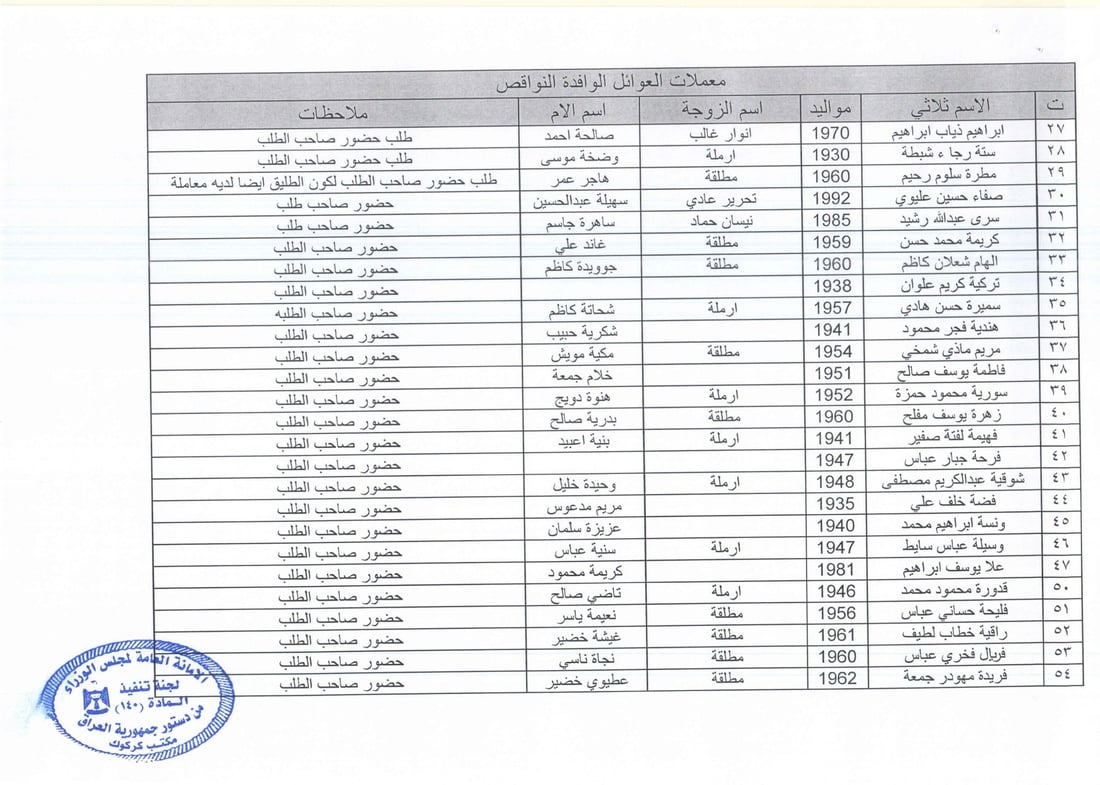 معملات العوائل الوافدة النواقص
ت الاسم ثلاثي مواليد اسم الزوجة اسم الام ملاحظات
٢٧ ابراهيم ذياب ابراهيم 1970 انوار غالب صالحة احمد طلب حضور صاحب الطلب
٢٨ ستة رجا ء شبطة 1930 ارملة وضخة موسى طلب حضور صاحب الطلب
٢٩ مطرة سلوم رحيم 1960 مطلقة هاجر عمر طلب حضور صاحب الطلب لكون الطليق ايضا لديه معاملة
٣٠ صفاء حسين عليوي 1992 تحرير عادي سهيلة عبدالحسين حضور صاحب طلب
٣١ سرى عبدالله رشيد 1985 نيسان حماد ساهرة جاسم حضور صاحب طلب
٣٢ كريمة محمد حسن 1959 مطلقة غاند علي حضور صاحب الطلب
٣٣ الهام شعلان كاظم 1960 مطلقة جوويدة كاظم حضور صاحب الطلب
٣٤ تركية كريم علوان 1938 حضور صاحب الطلب
٣٥ سميرة حسن هادي 1957 ارملة شحاتة كاظم حضور صاحب الطلبه
٣٦ هندية فجر محمود 1941 شكرية حبيب حضور صاحب الطلب
٣٧ مريم ماذي شمخي 1954 مطلقة مكية مويش حضور صاحب الطلب
٣٨ فاطمة يوسف صالح 1951 خلام جمعة حضور صاحب الطلب
٣٩ سورية محمود حمزة 1952 ارملة هنوة دويج حضور صاحب الطلب
٤٠ زهرة يوسف مفلح 1960 مطلقة بدرية صالح حضور صاحب الطلب
٤١ فهيمة لفتة صفير 1941 ارملة بنية اعبيد حضور صاحب الطلب
٤٢ فرحة جبار عباس 1947 حضور صاحب الطلب
٤٣ شوقية عبدالكريم مصطفى 1948 ارملة وحيدة خليل حضور صاحب الطلب
٤٤ فضة خلف علي 1935 مريم مدعوس حضور صاحب الطلب
٤٥ ونسة ابراهيم محمد 1940 عزيزة سلمان حضور صاحب الطلب
٤٦ وسيلة عباس سايط 1947 ارملة سنية عباس حضور صاحب الطلب
٤٧ علا يوسف ابراهيم 1981 كريمة محمود حضور صاحب الطلب
٥٠ قدورة محمود محمد 1946 ارملة تاضي صالح حضور صاحب الطلب
٥١ فليحة حساني عباس 1956 مطلقة نعيمة ياسر حضور صاحب الطلب
٥٢ راقية خطاب لطيف 1961 مطلقة غيشة خضير حضور صاحب الطلب
٥٣ فريال فخري عباس 1960 مطلقة نجاة ناسي حضور صاحب الطلب
٥٤ فريدة مهودر جمعة 1962 مطلقة عطيوي خضير حضور صاحب الطلب
الامانة العامة لمجلس الوزراء
لجنة تنفيذ
المادة (١٤٠)
من دستور جمهورية العراق
مكتب كركوك